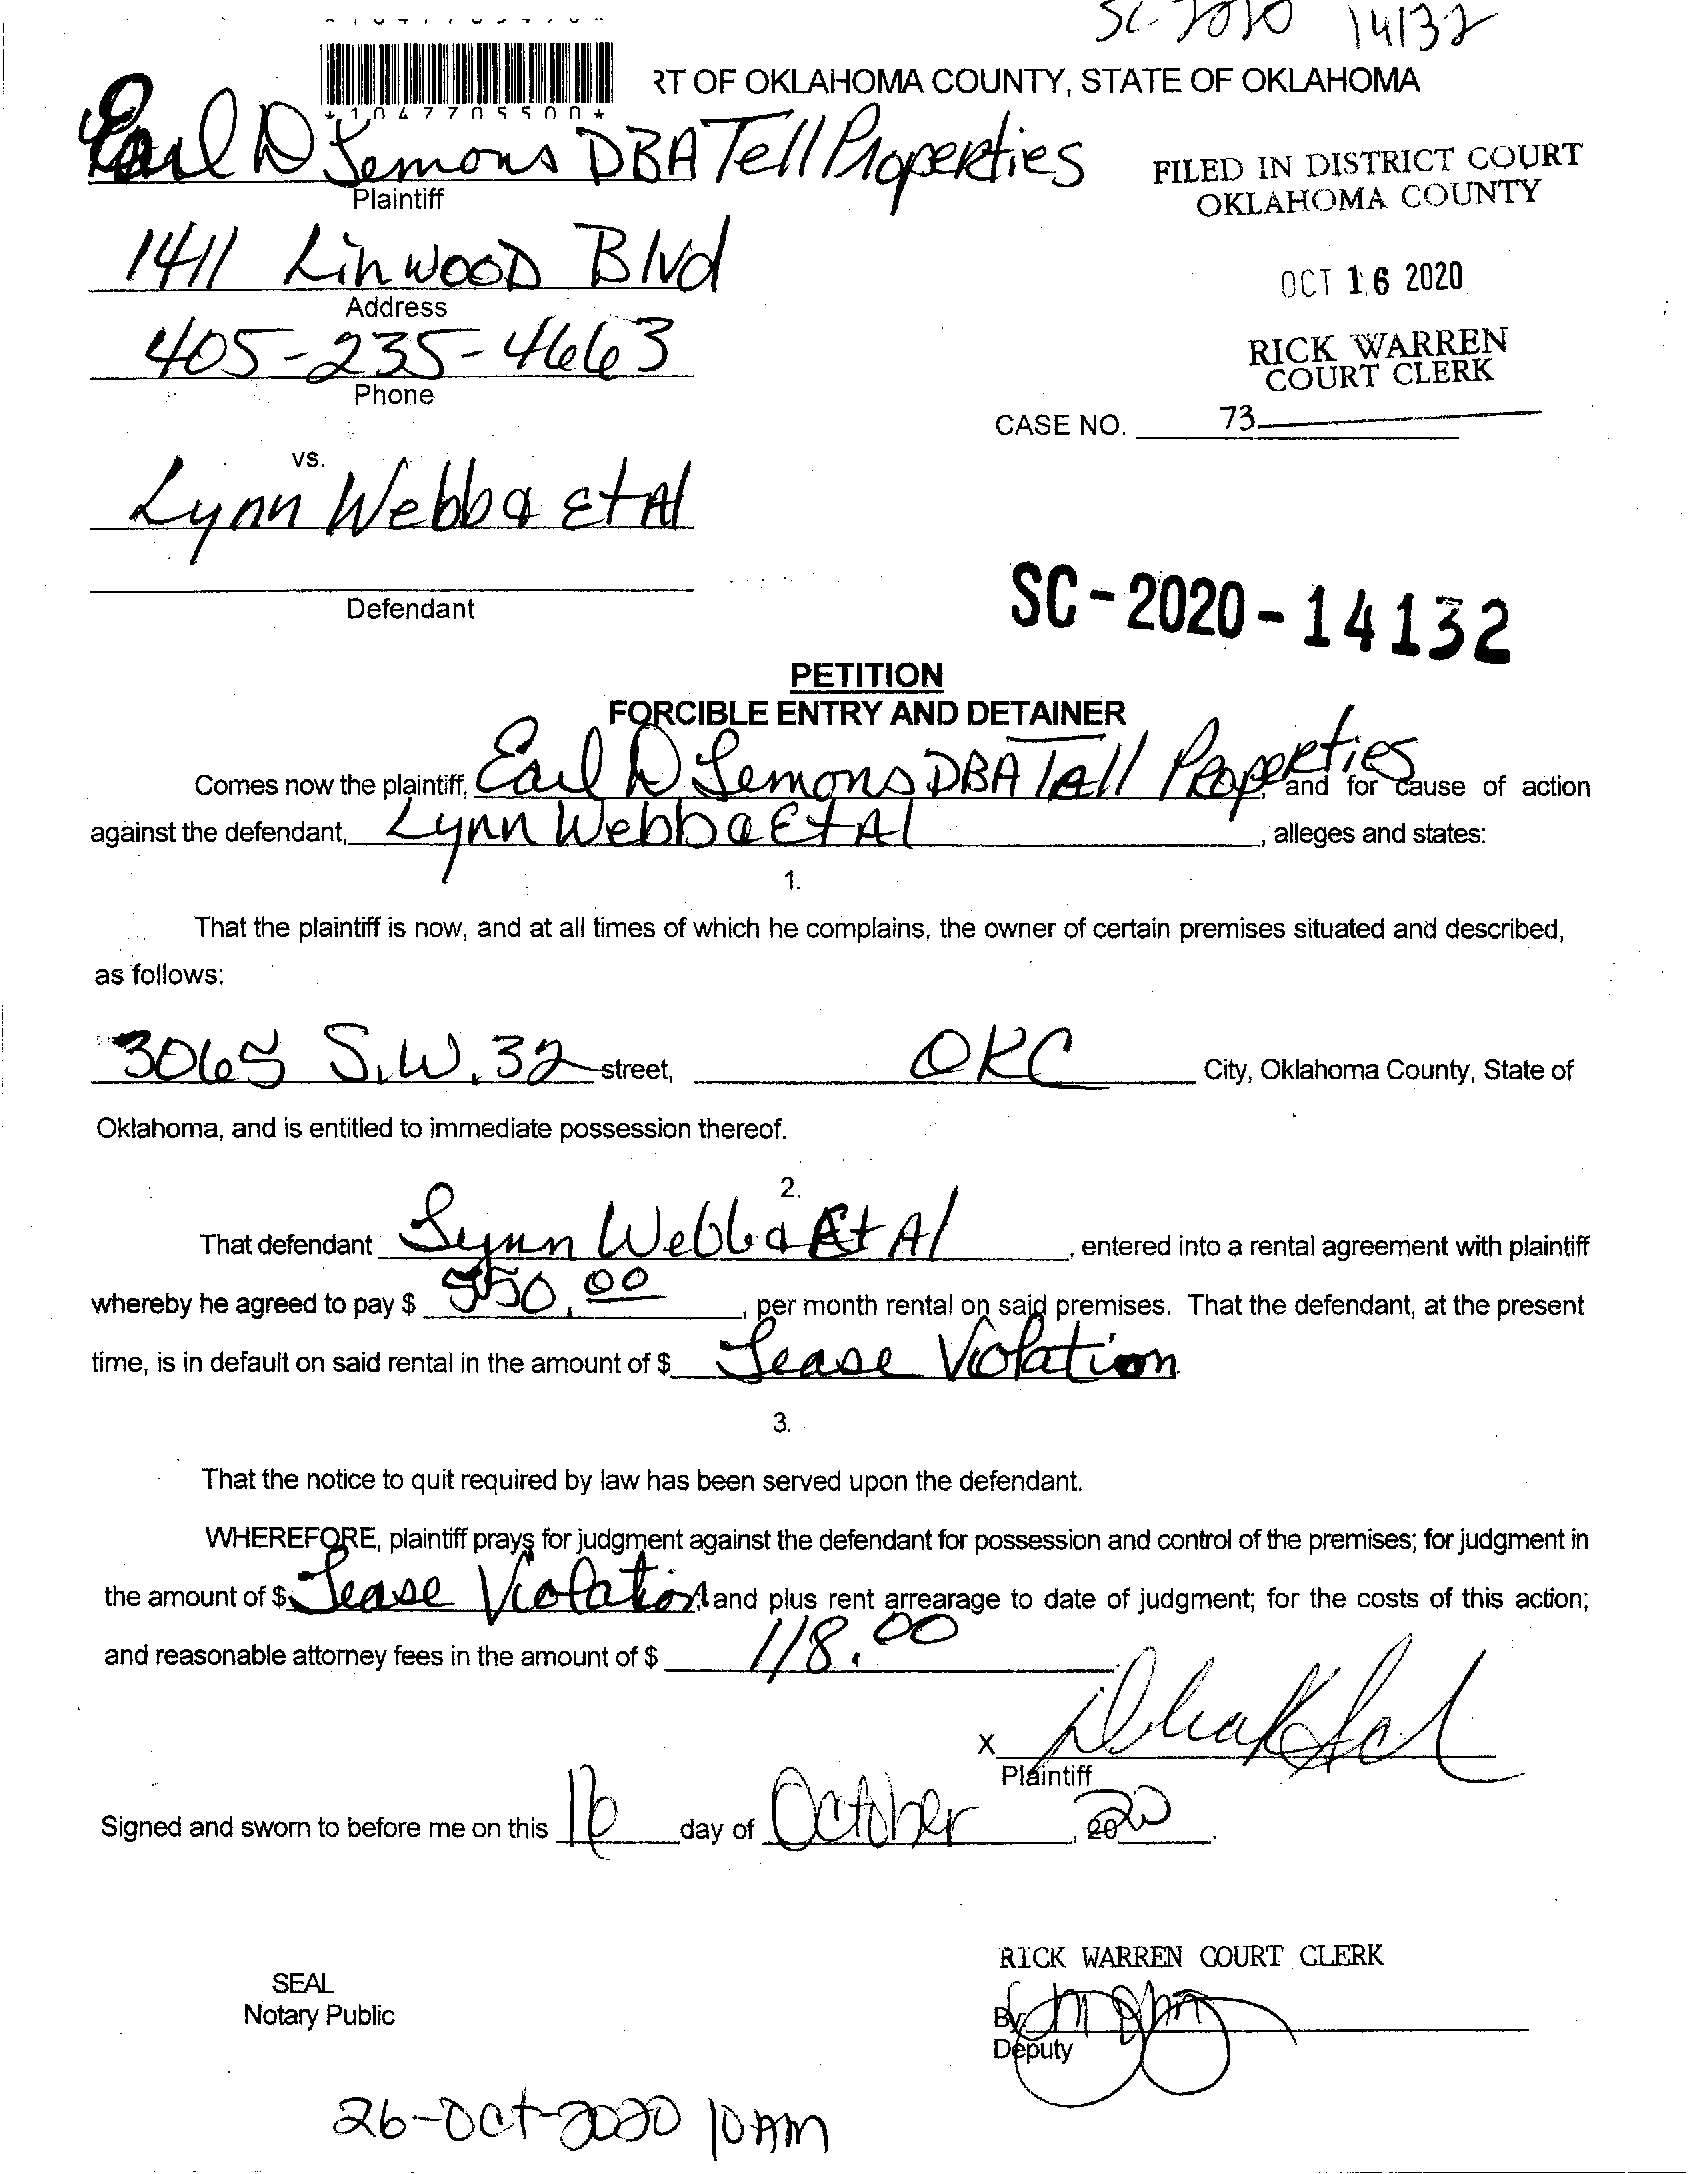 SC-2020 14132
RT OF OKLAHOMA COUNTY, STATE OF OKLAHOMA
*1047705500*
Earl D Lemons DBA Tell Properties
Plaintiff
FILED IN DISTRICT COURT
OKLAHOMA COUNTY
1411 Linwood Blvd
Address
OCT 16 2020
405-235-4663
Phone
RICK WARREN
COURT CLERK
CASE NO. 73
vs.
Lynn Webba Et Al
Defendant
SC-2020-14132
PETITION
FORCIBLE ENTRY AND DETAINER
Comes now the plaintiff, Earl D Lemons DBA Tell Properties, and for cause of action
against the defendant, Lynn Webba Et Al, alleges and states:
1.
That the plaintiff is now, and at all times of which he complains, the owner of certain premises situated and described,
as follows:
3065 S.W. 32 street, OKC City, Oklahoma County, State of
Oklahoma, and is entitled to immediate possession thereof.
2.
That defendant Lynn Webba Et Al, entered into a rental agreement with plaintiff
whereby he agreed to pay $ 550.00, per month rental on said premises. That the defendant, at the present
time, is in default on said rental in the amount of $ Lease Violation.
3.
That the notice to quit required by law has been served upon the defendant.
WHEREFORE, plaintiff prays for judgment against the defendant for possession and control of the premises; for judgment in
the amount of $ Lease Violation and plus rent arrearage to date of judgment; for the costs of this action;
and reasonable attorney fees in the amount of $ 118.00
X
Plaintiff
Signed and sworn to before me on this 16 day of October, 2020.
RICK WARREN COURT CLERK
SEAL
Notary Public
By
Deputy
26-Oct-2020 10AM